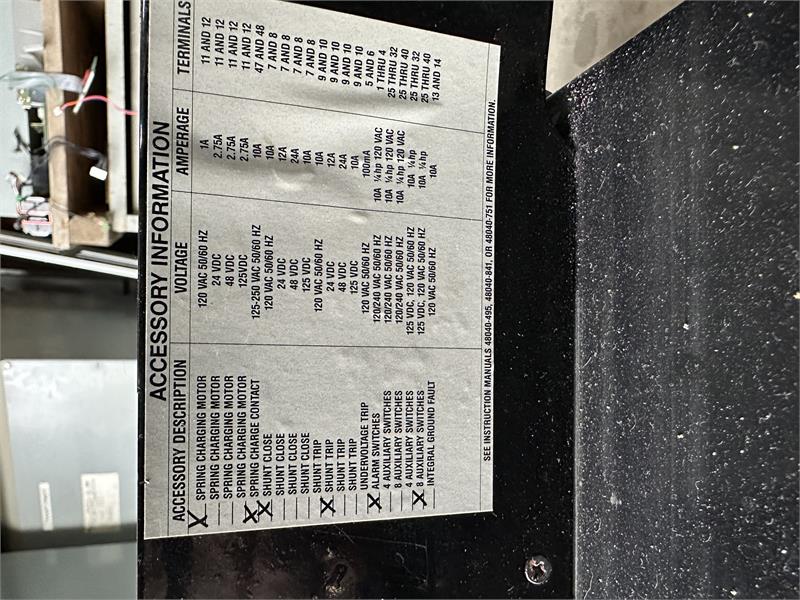 ACCESSORY INFORMATION
ACCESSORY DESCRIPTION VOLTAGE AMPERAGE TERMINALS
X SPRING CHARGING MOTOR 120 VAC 50/60 HZ 1A 11 AND 12
SPRING CHARGING MOTOR 24 VDC 2.75A 11 AND 12
SPRING CHARGING MOTOR 48 VDC 2.75A 11 AND 12
SPRING CHARGING MOTOR 125VDC 2.75A 11 AND 12
X SPRING CHARGE CONTACT 125-250 VAC 50/60 HZ 10A 47 AND 48
X SHUNT CLOSE 120 VAC 50/60 HZ 10A 7 AND 8
SHUNT CLOSE 24 VDC 12A 7 AND 8
SHUNT CLOSE 48 VDC 24A 7 AND 8
SHUNT CLOSE 125 VDC 10A 7 AND 8
SHUNT TRIP 120 VAC 50/60 HZ 10A 9 AND 10
X SHUNT TRIP 24 VDC 12A 9 AND 10
SHUNT TRIP 48 VDC 24A 9 AND 10
SHUNT TRIP 125 VDC 10A 9 AND 10
UNDERVOLTAGE TRIP 120 VAC 50/60 HZ 100mA 5 AND 6
X ALARM SWITCHES 120/240 VAC 50/60 HZ 10A ¼hp 120 VAC 1 THRU 4
4 AUXILIARY SWITCHES 120/240 VAC 50/60 HZ 10A ¼hp 120 VAC 25 THRU 32
8 AUXILIARY SWITCHES 120/240 VAC 50/60 HZ 10A ¼hp 120 VAC 25 THRU 40
4 AUXILIARY SWITCHES 125 VDC, 120 VAC 50/60 HZ 10A ¼hp 25 THRU 32
X 8 AUXILIARY SWITCHES 125 VDC, 120 VAC 50/60 HZ 10A ¼hp 25 THRU 40
INTEGRAL GROUND FAULT 120 VAC 50/60 HZ 10A 13 AND 14
SEE INSTRUCTION MANUALS 48040-495, 48040-841, OR 48040-751 FOR MORE INFORMATION.